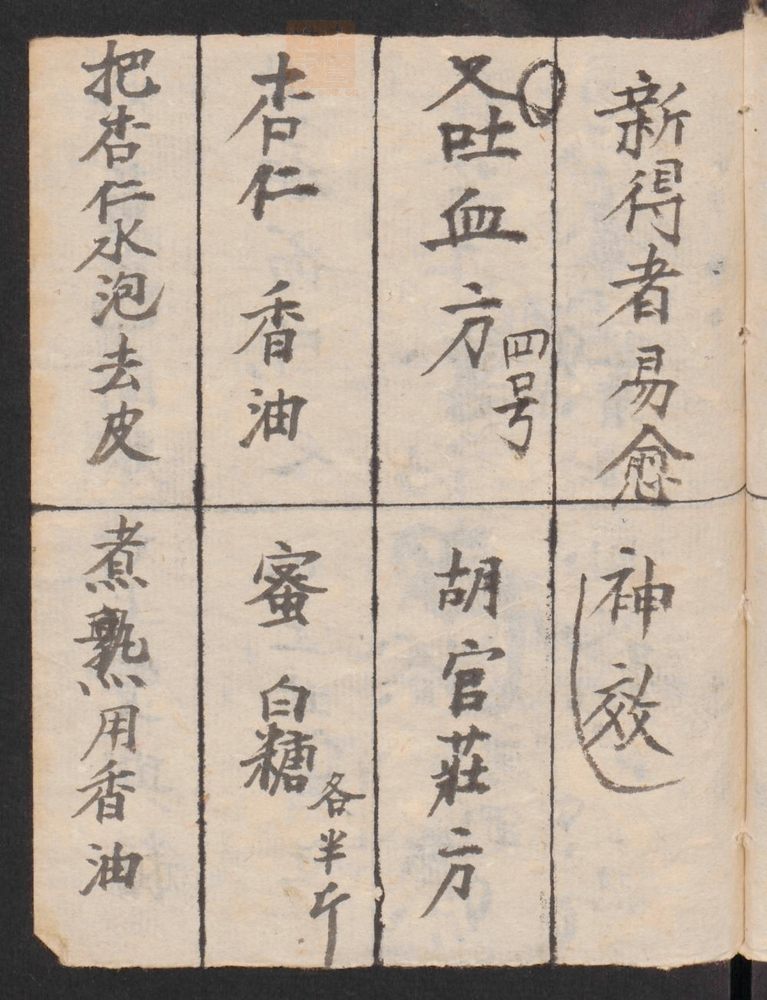 新得者易愈 神效
又吐血方 四号 胡官莊方
杏仁 香油 蜜 白糖 各半斤
把杏仁水泡去皮 煮熟用香油